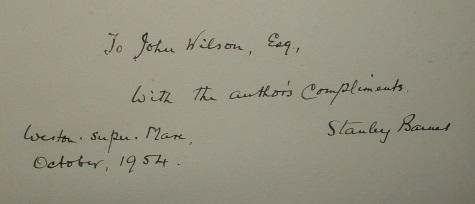 To John Wilson, Esq,
With the author's Compliments.
Stanley Barnes
Weston-super-Mare,
October, 1954.